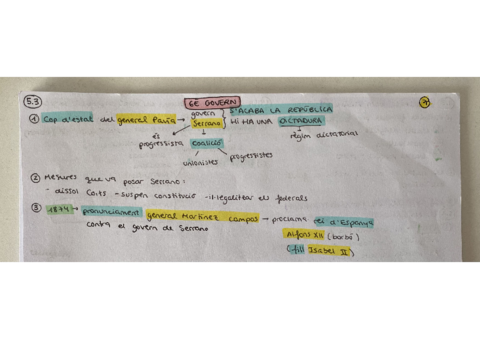 5.3
6È GOVERN
7
1 Cop d'estat del general Pavía → govern Serrano { S'ACABA LA REPÚBLICA
HI HA UNA DICTADURA
règim dictatorial
és progressista
COALICIÓ
unionistes
progressistes
2 Mesures que va posar Serrano:
- dissol Corts - suspèn constitució - il·legalitar els federals
3 1874 → pronunciament general Martínez Campos → proclama rei d'Espanya
contra el govern de Serrano
Alfons XII (borbó)
(fill Isabel II)